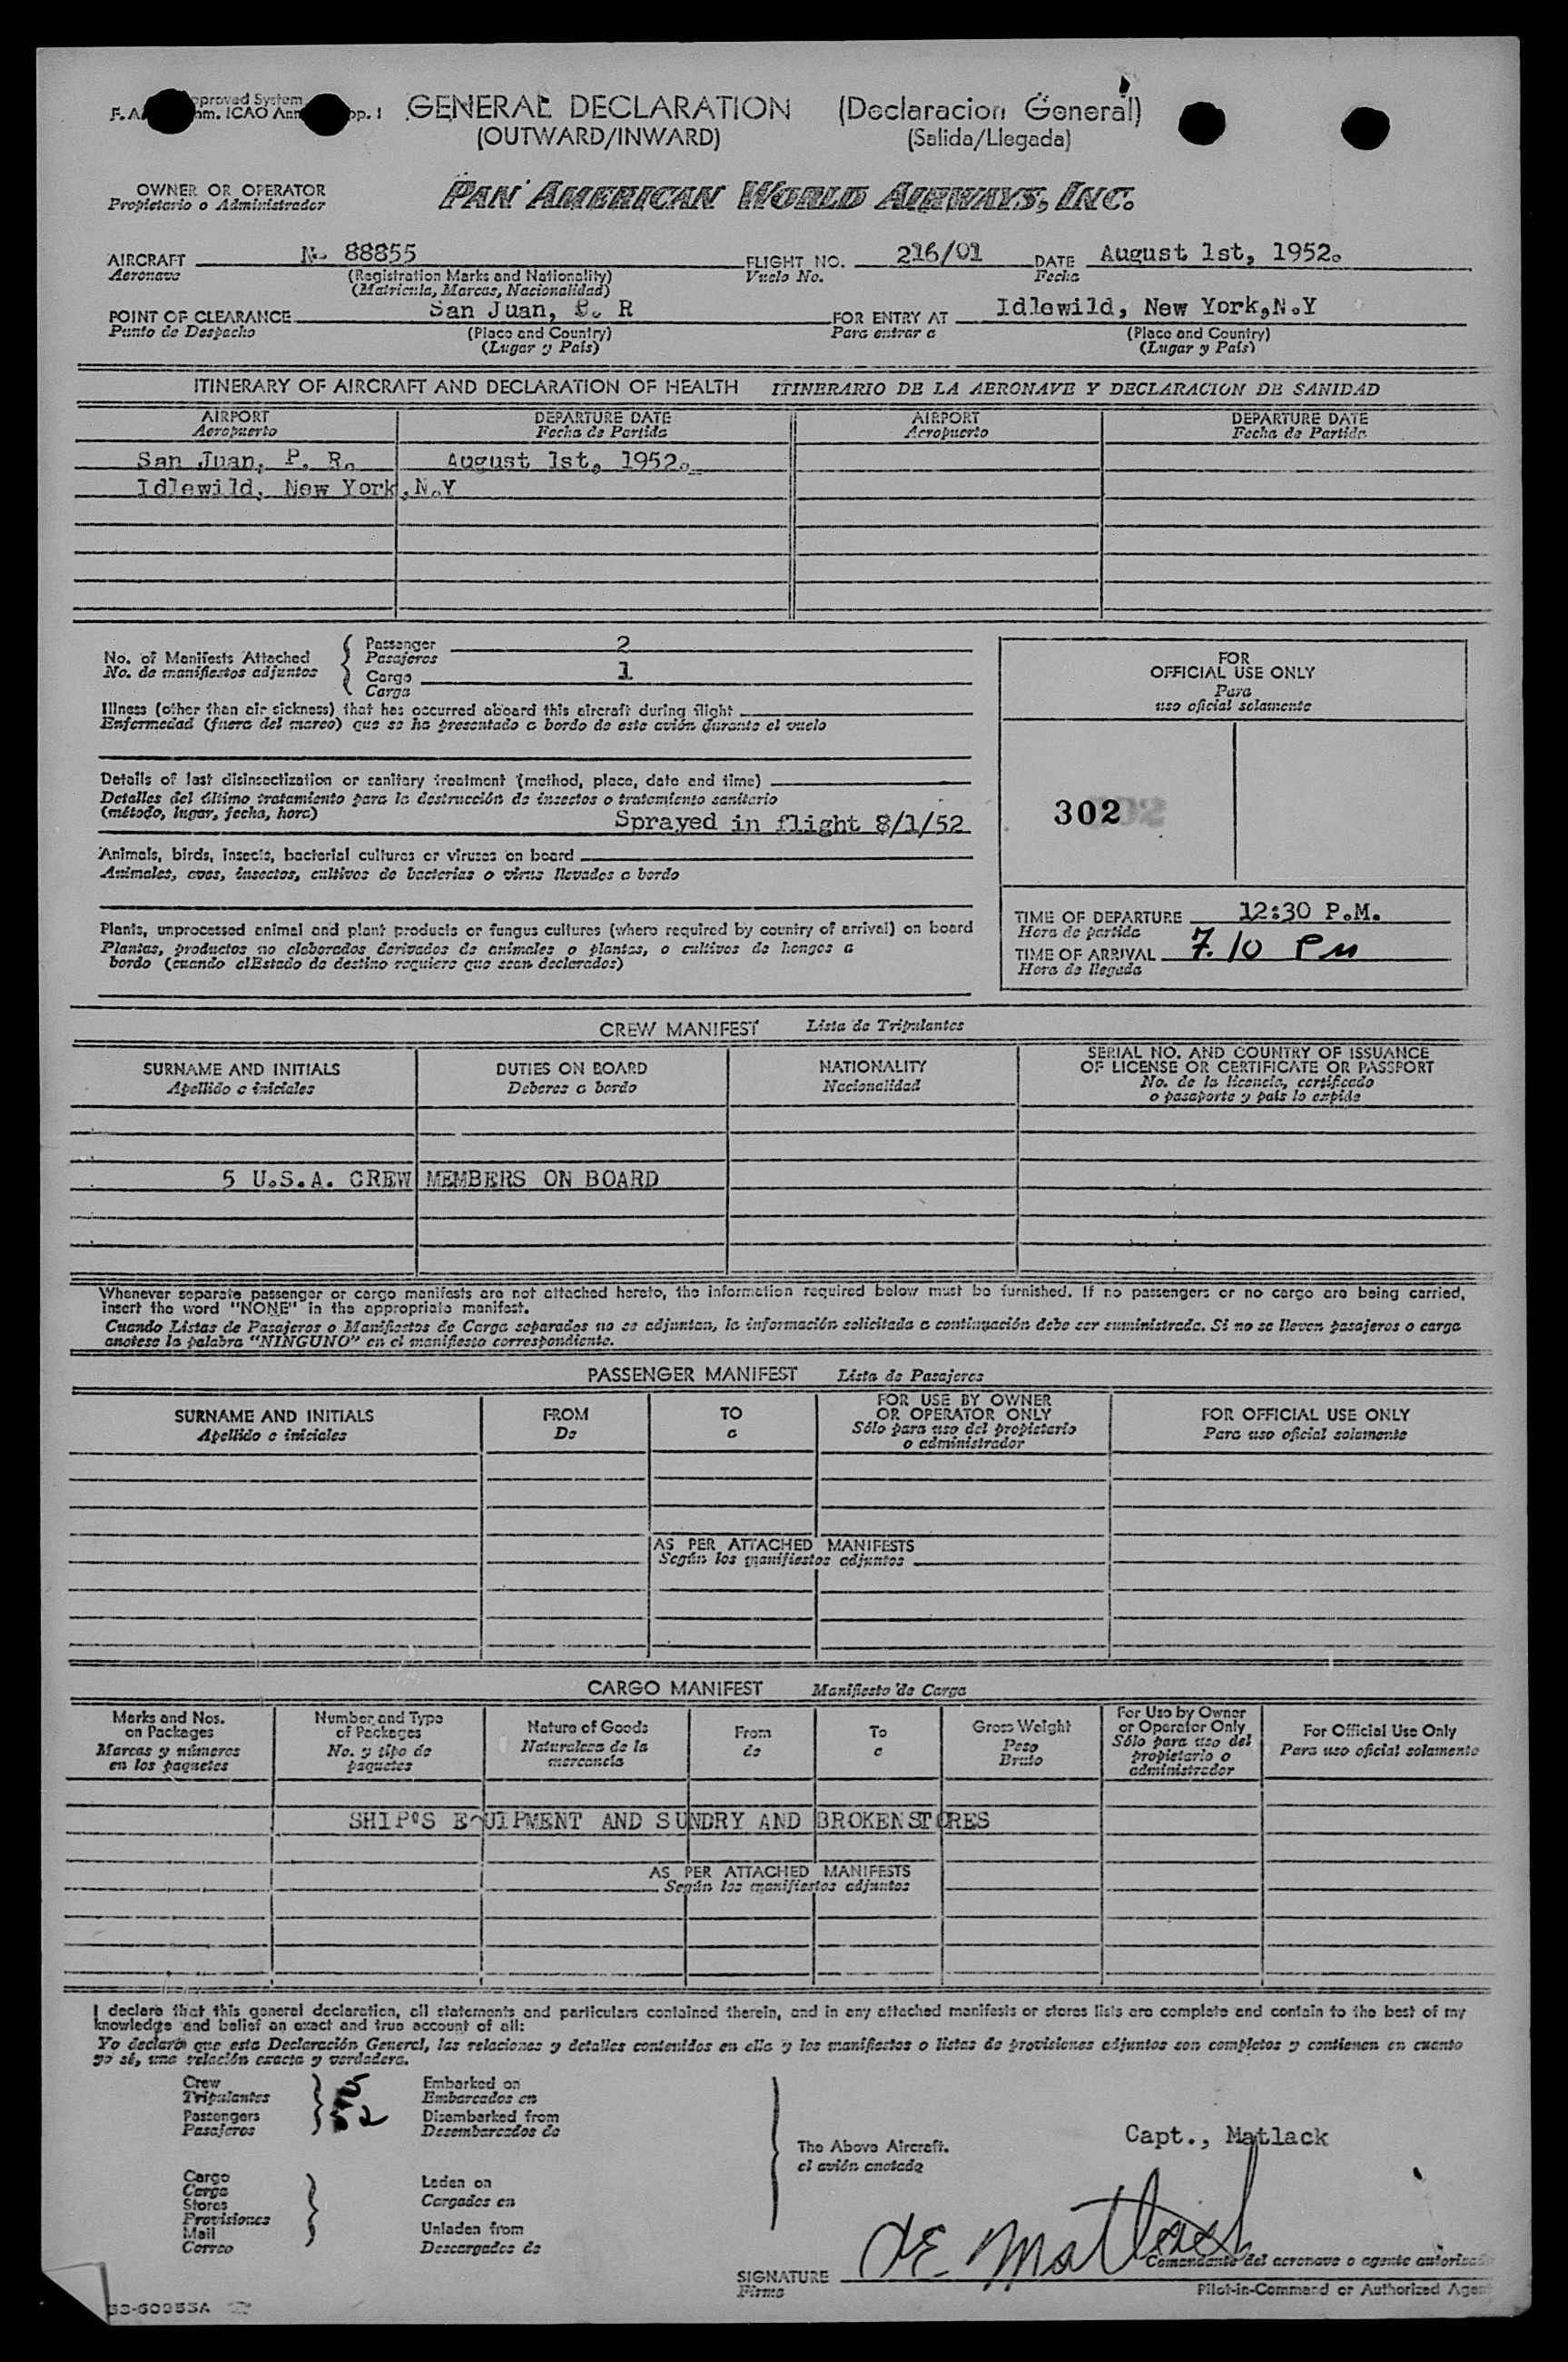 pproved System
F. A nm. ICAO Ann pp. I
GENERAL DECLARATION (Declaracion General)
(OUTWARD/INWARD) (Salida/Llegada)
OWNER OR OPERATOR
Propietario o Administrador
PAN AMERICAN WORLD AIRWAYS, INC.
AIRCRAFT N. 88855 FLIGHT NO. 216/01 DATE August 1st, 1952.
Aeronave (Registration Marks and Nationality) Vuelo No. Fecha
(Matricula, Marcas, Nacionalidad)
POINT OF CLEARANCE San Juan, P. R FOR ENTRY AT Idlewild, New York,N.Y
Punto de Despacho (Place and Country) Para entrar a (Place and Country)
(Lugar y País) (Lugar y País)
ITINERARY OF AIRCRAFT AND DECLARATION OF HEALTH ITINERARIO DE LA AERONAVE Y DECLARACION DE SANIDAD
AIRPORT DEPARTURE DATE AIRPORT DEPARTURE DATE
Aeropuerto Fecha de Partida Aeropuerto Fecha de Partida
San Juan, P. R. August 1st, 1952.
Idlewild, New York,N.Y
No. of Manifests Attached
No. de manifiestos adjuntos
Passenger 2
Pasajeros
Cargo 1
Carga
Illness (other than air sickness) that has occurred aboard this aircraft during flight
Enfermedad (fuera del mareo) que se ha presentado a bordo de este avión durante el vuelo
Details of last disinsectization or sanitary treatment (method, place, date and time)
Detalles del último tratamiento para la destrucción de insectos o tratamiento sanitario
(método, lugar, fecha, hora)
Sprayed in flight 8/1/52
Animals, birds, insects, bacterial cultures or viruses on board
Animales, aves, insectos, cultivos de bacterias o virus llevados a bordo
Plants, unprocessed animal and plant products or fungus cultures (where required by country of arrival) on board
Plantas, productos no elaborados derivados de animales o plantas, o cultivos de hongos a
bordo (cuando elEstado de destino requiere que sean declarados)
FOR
OFFICIAL USE ONLY
Para
uso oficial solamente
302
TIME OF DEPARTURE 12:30 P.M.
Hora de partida
TIME OF ARRIVAL 7.10 PM
Hora de llegada
CREW MANIFEST Lista de Tripulantes
SURNAME AND INITIALS DUTIES ON BOARD NATIONALITY SERIAL NO. AND COUNTRY OF ISSUANCE
OF LICENSE OR CERTIFICATE OR PASSPORT
Apellido e iniciales Deberes a bordo Nacionalidad No. de la licencia, certificado
o pasaporte y país lo expide
5 U.S.A. CREW MEMBERS ON BOARD
Whenever separate passenger or cargo manifests are not attached hereto, the information required below must be furnished. If no passengers or no cargo are being carried,
insert the word "NONE" in the appropriate manifest.
Cuando Listas de Pasajeros o Manifiestos de Carga separados no se adjuntan, la información solicitada a continuación debe ser suministrada. Si no se lleven pasajeros o carga
anotese la palabra "NINGUNO" en el manifiesto correspondiente.
PASSENGER MANIFEST Lista de Pasajeros
SURNAME AND INITIALS
Apellido e iniciales
FROM
De
TO
a
FOR USE BY OWNER
OR OPERATOR ONLY
Sólo para uso del propietario
o administrador
FOR OFFICIAL USE ONLY
Para uso oficial solamente
AS PER ATTACHED MANIFESTS
Según los manifiestos adjuntos
CARGO MANIFEST Manifiesto de Carga
Marks and Nos.
on Packages
Marcas y números
en los paquetes
Number and Type
of Packages
No. y tipo de
paquetes
Nature of Goods
Naturaleza de la
mercancía
From
de
To
a
Gross Weight
Peso
Bruto
For Use by Owner
or Operator Only
Sólo para uso del
propietario o
administrador
For Official Use Only
Para uso oficial solamente
SHIP'S EQUIPMENT AND SUNDRY AND BROKEN STORES
AS PER ATTACHED MANIFESTS
Según los manifiestos adjuntos
I declare that this general declaration, all statements and particulars contained therein, and in any attached manifests or stores lists are complete and contain to the best of my
knowledge and belief an exact and true account of all:
Yo declaro que esta Declaración General, las relaciones y detalles contenidos en ella y los manifiestos o listas de provisiones adjuntos son completos y contienen en cuanto
yo sé, una relación exacta y verdadera.
Crew 5
Tripulantes
Passengers 52
Pasajeros
Embarked on
Embarcados en
Disembarked from
Desembarcados de
Cargo
Carga
Stores
Provisiones
Mail
Correo
Laden on
Cargados en
Unladen from
Descargados de
The Above Aircraft.
el avión anotado
Capt., Matlack
SIGNATURE
Firma
Matlack
Comandante del aeronave o agente autorizado
Pilot-in-Command or Authorized Agent